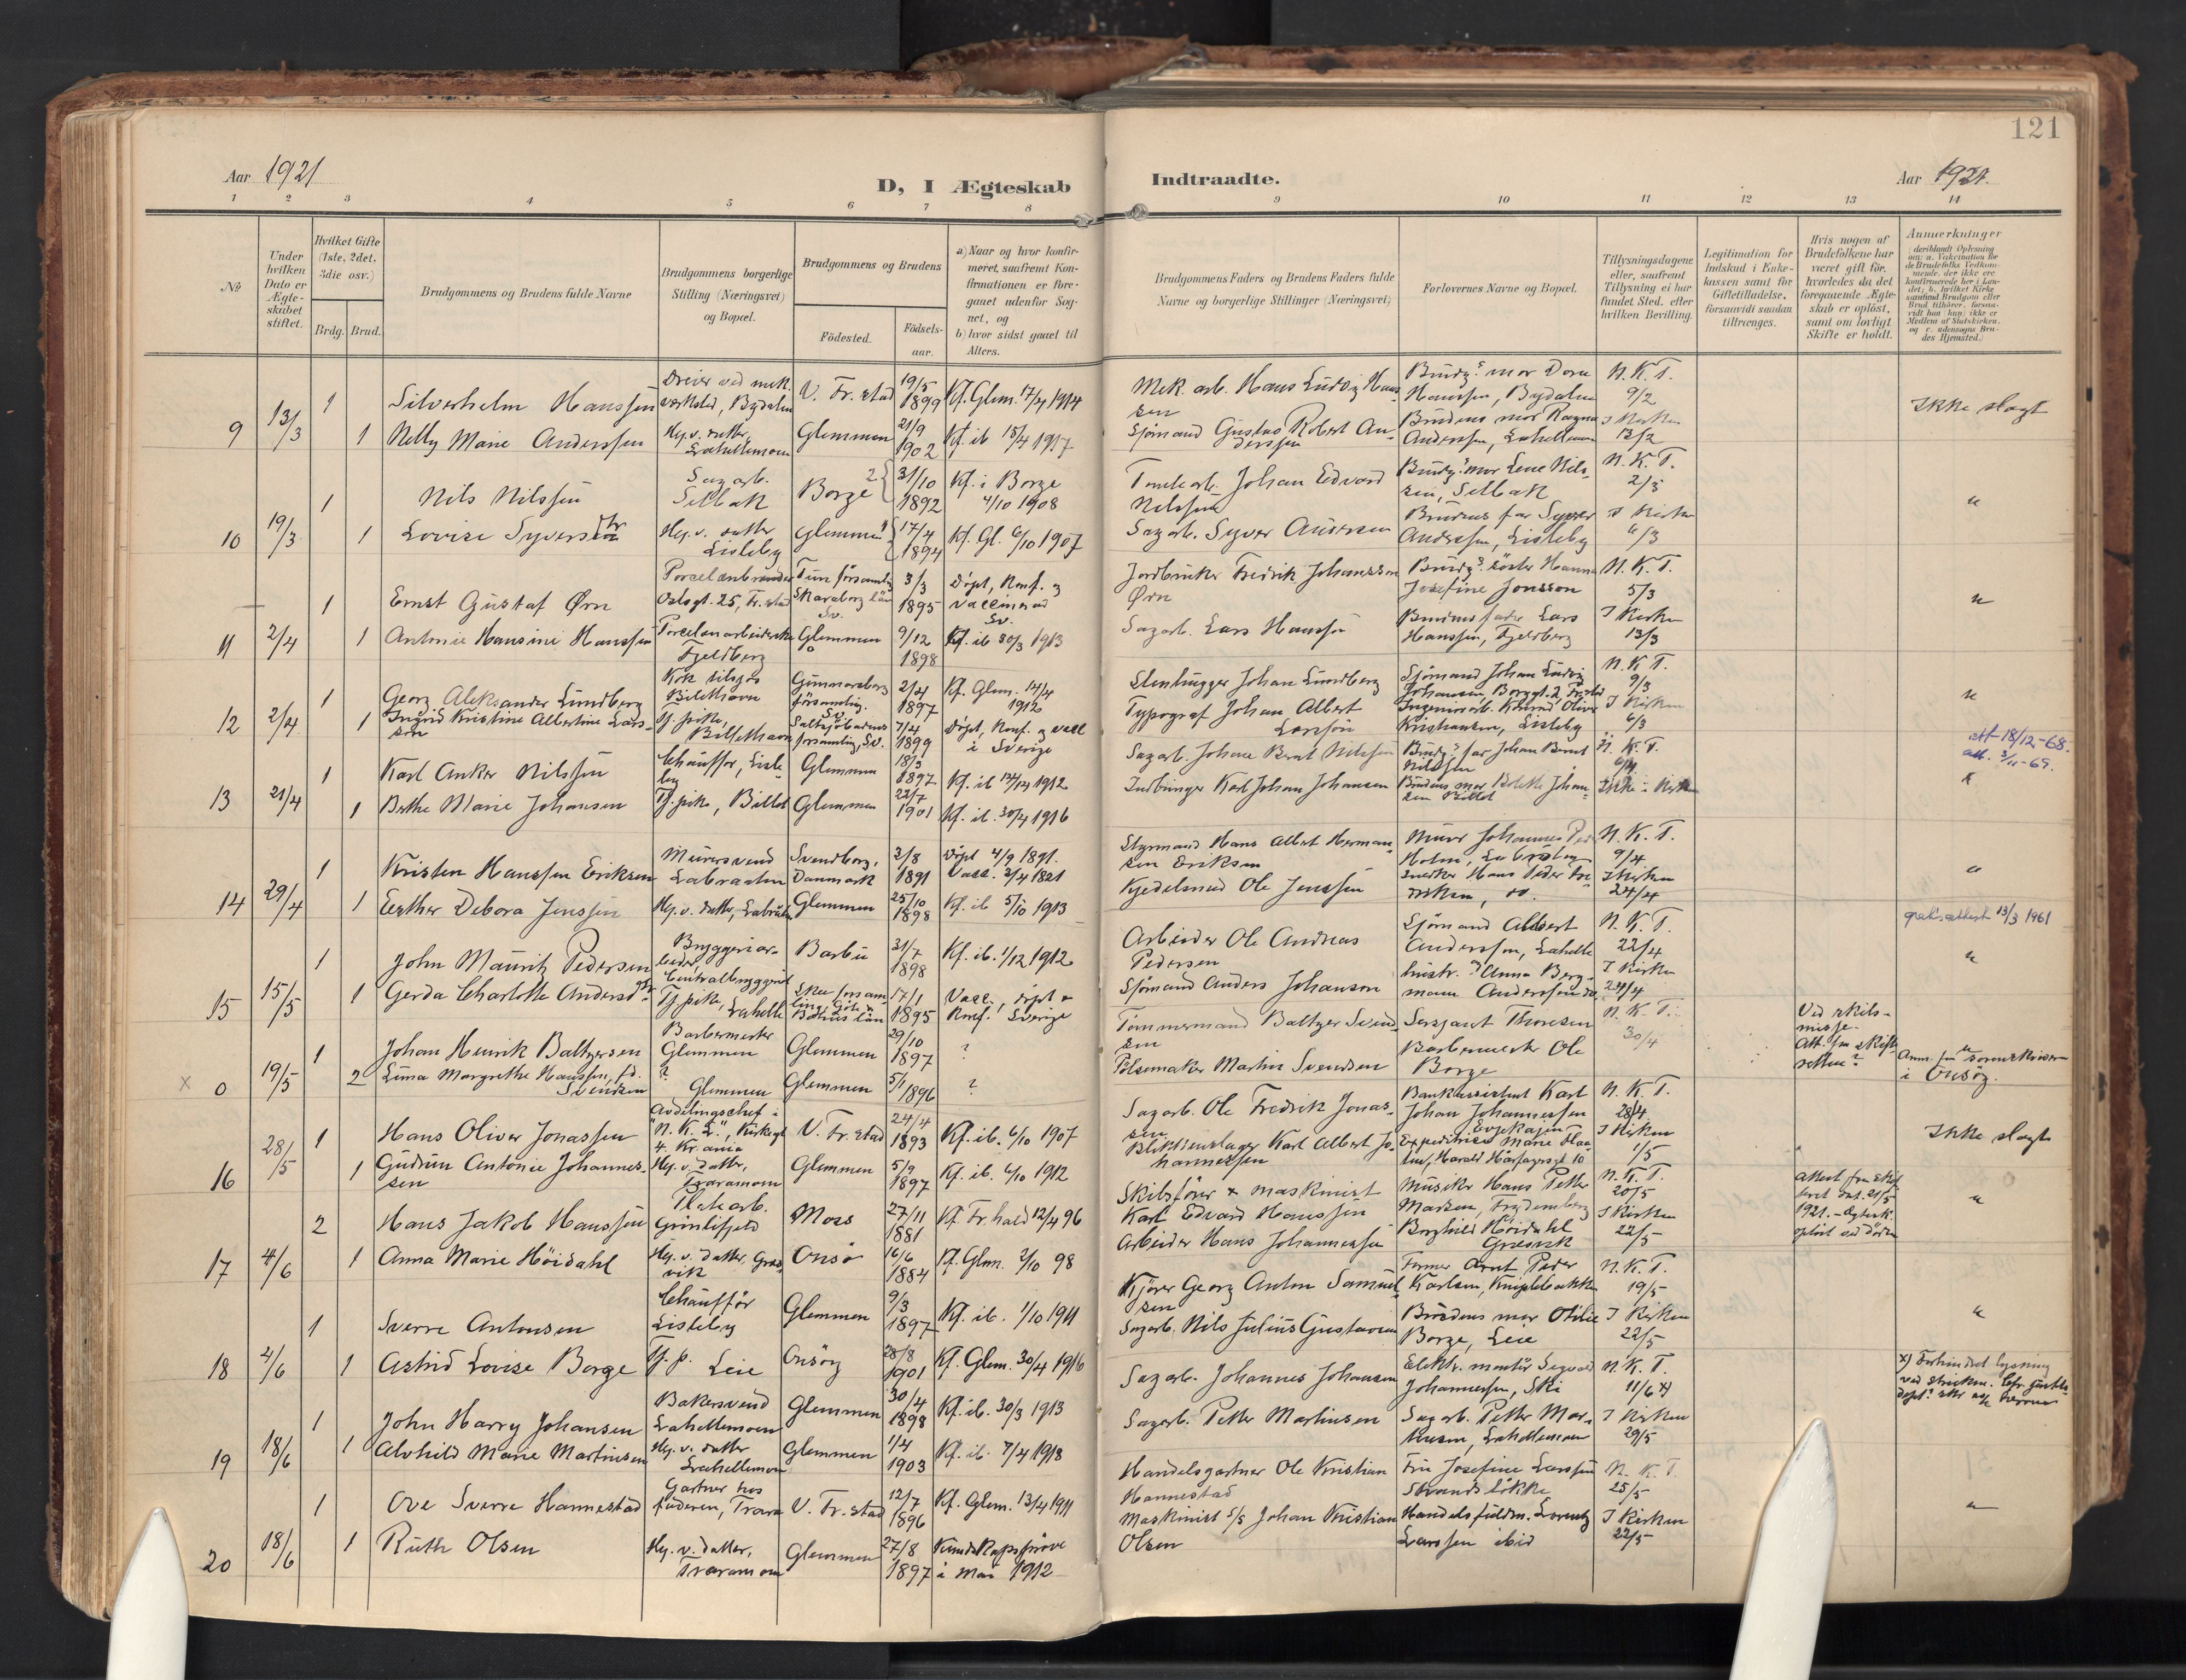 121
Aar 1921
D, I Ægteskab
Indtraadte.
Aar 1921.
1 2 3 4 5 6 7 8 9 10 11 12 13 14
№
Under hvilken Dato er Ægteskabet stiftet.
Hvilket Gifte (1ste, 2det, 3die osv.)
Brdg. Brud.
Brudgommens og Brudens fulde Navne
Brudgommens borgerlige Stilling (Næringsvei) og Bopæl.
Brudgommens og Brudens
Fødested.
Fødselsaar.
a) Naar og hvor konfirmeret, saafremt Konfirmationen er foregaaet udenfor Sognet, og
b) hvor sidst gaaet til Alters.
Brudgommens Faders og Brudens Faders fulde Navne og borgerlige Stillinger (Næringsvei)
Forlovernes Navne og Bopæl.
Tillysningsdagene eller, saafremt Tillysning ei har fundet Sted, efter hvilken Bevilling.
Legitimation for Indskud i Enkekassen samt for Giftetilladelse, forsaavidt saadan tiltrænges.
Hvis nogen af Brudefolkene har været gift før, hvorledes da det foregaaende Ægteskab er opløst, samt om lovligt Skifte er holdt.
Anmerkninger
9 13/3
1 Silverhelm Hanssen Dreier ved mek. verksted, Bydalen V. Fr.stad 19/5 1899 Kf. Glem. 17/4 1914 Mek. arb. Hans Ludvig Hanssen Brudg.s mor Dora Hanssen, Bydalen N.K.T. 9/2 Ikke slegt
1 Nelly Marie Anderssen Hj.v. datter, Lahellemoen Glemmen 21/9 1902 Kf. ib 15/4 1917 Sjømand Gustav Robert Anderssen Brudens mor Ragna Anderssen, Lahellemoen I Kirken 13/2
10 19/3
1 Nils Nilssen Sagarb. Selbak Borge 31/10 1892 Kf. i Borge 4/10 1908 Tomtearb. Johan Edvard Nilssen Brudg.s mor Lene Nilssen, Selbak N.K.T. 2/3 "
1 Lovise Syversdtr Hj.v. datter Lisleby Glemmen 17/4 1894 Kf. Gl. 6/10 1907 Sagarb. Syver Andersen Brudens far Syver Anderssen, Lisleby I Kirken 6/3
11 2/4
1 Ernst Gustaf Ørn Porcelænbrænder Oslogt. 25, Fr.stad Tun församling Skaraborg län Sv. 3/3 1895 Døpt, Konf. og vaccinerad Sv. Jordbruker Fredrik Johansson Ørn Brudg.s søster Hanna Josefine Jonsson N.K.T. 5/3 "
1 Antonie Hansine Hanssen Porcelænarbeiderske Fjeldberg Glemmen 9/12 1898 Kf. ib 30/3 1913 Sagarb. Lars Hanssen Brudens fader Lars Hanssen, Fjeldberg I Kirken 13/3
12 2/4
1 Georg Aleksander Lundberg Kok tilsjøs Gunnarsborg församling. Sv. 2/4 1897 Kf. Glem. 14/4 1912 Stenhugger Johan Lundberg Sjømand Johan Ludvig Johansen, Borggt. 2, Fr.stad N.K.T. 9/3 "
1 Ingrid Kristine Albertine Larsson Tj. pike, Saltsjöbadens församling, Sv. 7/4 1899 Døpt, Konf. og vacc i Sverige Typograf Johan Albert Larsson Konrad Oliver Kristiansen, Lisleby I Kirken 6/3
13 21/4
1 Karl Anker Nilssen Chauffør, Lisleby Glemmen 18/3 1897 Kf. ib 14/4 1912 Sagarb. Johan Bernt Nilssen Brudg.s far Johan Bernt Nilssen N.K.T. att 18/12-68. att. 3/11-69.
1 Berthe Marie Johansen Tj. pike, Glemmen 22/7 1901 Kf. ib. 30/4 1916 Karl Johan Johansen Brudens mor Johansen
14 29/4
1 Kristen Hanssen Eriksen Murersvend Labraaten Svendborg, Danmark 2/8 1891 Døpt 4/9 1891. Vacc. 3/4 1821 Styrmand Hans Albert Hermansen Eriksen Murer Johannes Holm, Labraaten N.K.T. 9/4 "
1 Esther Debora Jenssen Hj.v. datter, Labraaten Glemmen 25/10 1898 Kf. ib 5/10 1913 Kjedelsmed Ole Jenssen Snedker Hans Peder I Kirken 24/4
15 15/5
1 John Mauritz Pedersen Bryggeriarbeider Centralbryggeriet Barbu 31/7 1898 Kf. ib. 1/12 1912 Arbeider Ole Andreas Pedersen Sjømand Albert Anderssen, Lahelle N.K.T. 22/4 gratisattest 13/3 1961 "
1 Gerda Charlotte Andersdtr Tj. pike, Lahelle församling, Göte & Bohus län 17/1 1895 Vacc., døpt & Konf. i Sverige Sjømand Anders Johanson Anna Bergmann Anderssen I Kirken 24/4
x 0 19/5
1 Johan Henrik Baltzersen Barbermester Glemmen Glemmen 29/10 1897 ? Tømmermand Baltzer Svendsen Sersjant Thoresen N.K.T. 30/4 Ved skilsmisse. Att. fra skifteretten? Anm. fra sorenskriveren i Onsøy.
2 Lima Margrethe Hanssen, fd. Svendsen ? Glemmen Glemmen 5/1 1896 ? Pølsemaker Martin Svendsen Barbermester Ole Borge
16 28/5
1 Hans Oliver Jonassen Avdelingschef i "N.K.L.", Kirkegt 4. Kr.ania V. Fr.stad 24/4 1893 Kf. ib. 6/10 1907 Sagarb. Ole Fredrik Jonassen Bankassistent Karl Johan Johannessen N.K.T. 28/4 Ikke slegt
1 Gudrun Antonie Johannessen Hj.v. datter, Traramoen Glemmen 5/9 1897 Kf. ib. 6/10 1912 Blikkenslager Karl Albert Johannessen Expeditrice Marie Harald Hårfagresgt 10 I Kirken 1/5
17 4/6
2 Hans Jakob Hanssen Grønlifjeld Moss 27/11 1881 Kf. Fr.hald 12/4 96 Skibsfører & maskinist Karl Edvard Hanssen Musiker Hans Petter Madsen, N.K.T. 20/5 Attest fra skifteret dat. 21/5 1921. – Egtesk. opløst ved døden "
1 Anna Marie Höidahl Hj.v. datter, Græsvik Onsø 16/6 1884 Kf. Glem. 2/10 98 Arbeider Hans Johannessen Borghild Höidahl Græsvik I Kirken 22/5
18 4/6
1 Sverre Antonsen Chauffør Lisleby Glemmen 9/3 1897 Kf. ib. 1/10 1911 Kjører Georg Anton Samuelsen Former Arnt Peder Karlsen, Kniplebakken N.K.T. 19/5 "
1 Astrid Lovise Borge Tj. p. Leie Onsøy 28/8 1901 Kf. Glem. 30/4 1916 Sagarb. Nils Julius Gustavsen Brudens mor Otilie Borge, Leie I Kirken 22/5
19 18/6
1 John Harry Johansen Bakersvend Lahellemoen Glemmen 30/4 1898 Kf. ib. 30/3 1913 Sagarb. Johannes Johansen Elektr. montør Sigvald Johannessen, Ski N.K.T. 11/6 x) x) Forhindret lysning
1 Alvhild Marie Martinsen Hj.v. datter Lahellemoen Glemmen 1/4 1903 Kf. ib. 7/4 1918 Sagarb. Petter Martinsen Sagarb. Petter Martinsen, Lahellemoen I Kirken 29/5
20 18/6
1 Ove Sverre Hannestad Gartner hos faderen, Trara V. Fr.stad 12/7 1896 Kf. Glem. 13/4 1911 Handelsgartner Ole Kristian Hannestad Fru Josefine Larssen Strandløkke N.K.T. 25/5 "
1 Ruth Olsen Hj.v. datter, Traramoen Glemmen 27/8 1897 Kundskapsprøve i mai 1912 Maskinist s/s Johan Kristian Olsen Handelsfuldm. Lorentz Larssen ibid I Kirken 22/5